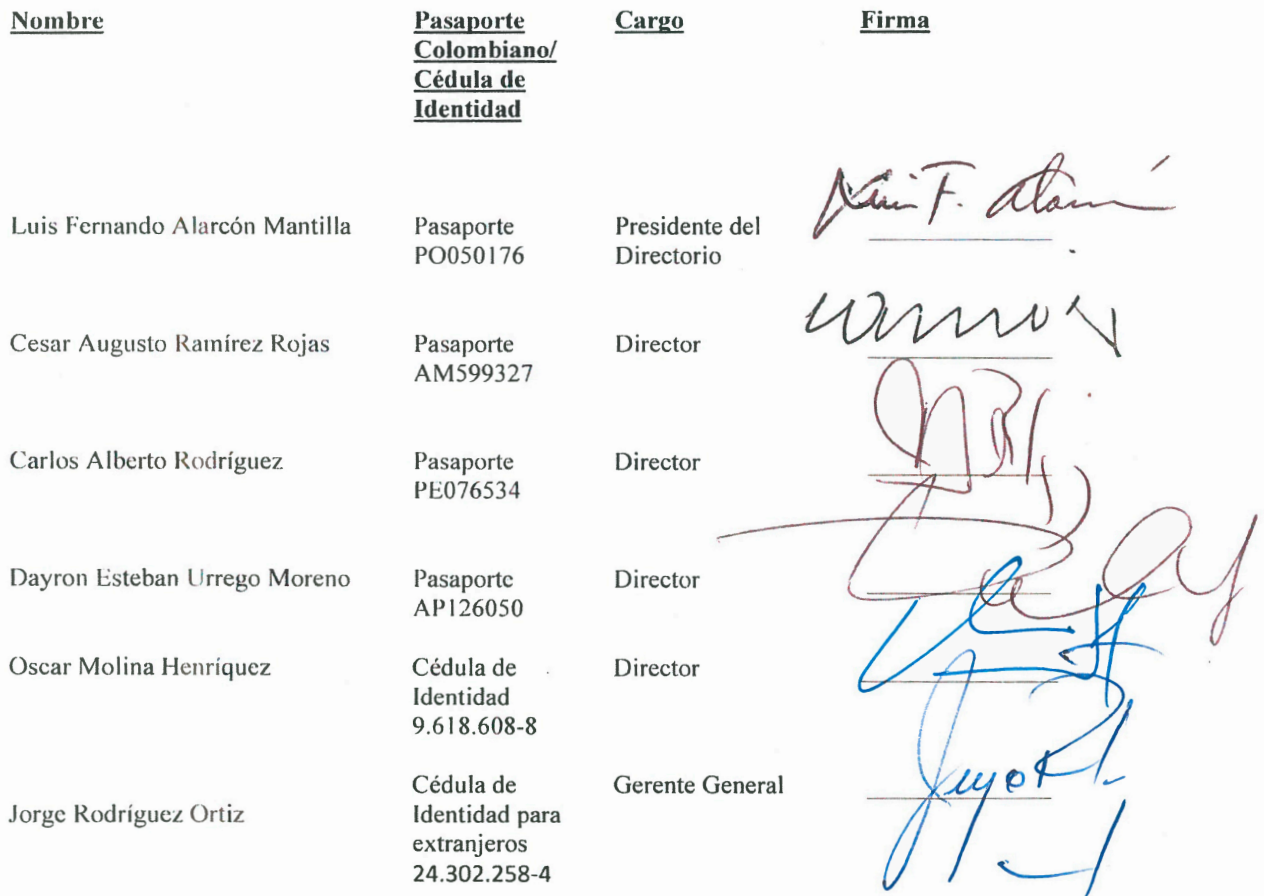 Nombre Pasaporte Colombiano/ Cédula de Identidad Cargo Firma
Luis Fernando Alarcón Mantilla Pasaporte PO050176 Presidente del Directorio Luis F. Alarcón
Cesar Augusto Ramírez Rojas Pasaporte AM599327 Director
Carlos Alberto Rodríguez Pasaporte PE076534 Director
Dayron Esteban Urrego Moreno Pasaporte AP126050 Director
Oscar Molina Henríquez Cédula de Identidad 9.618.608-8 Director
Jorge Rodríguez Ortiz Cédula de Identidad para extranjeros 24.302.258-4 Gerente General